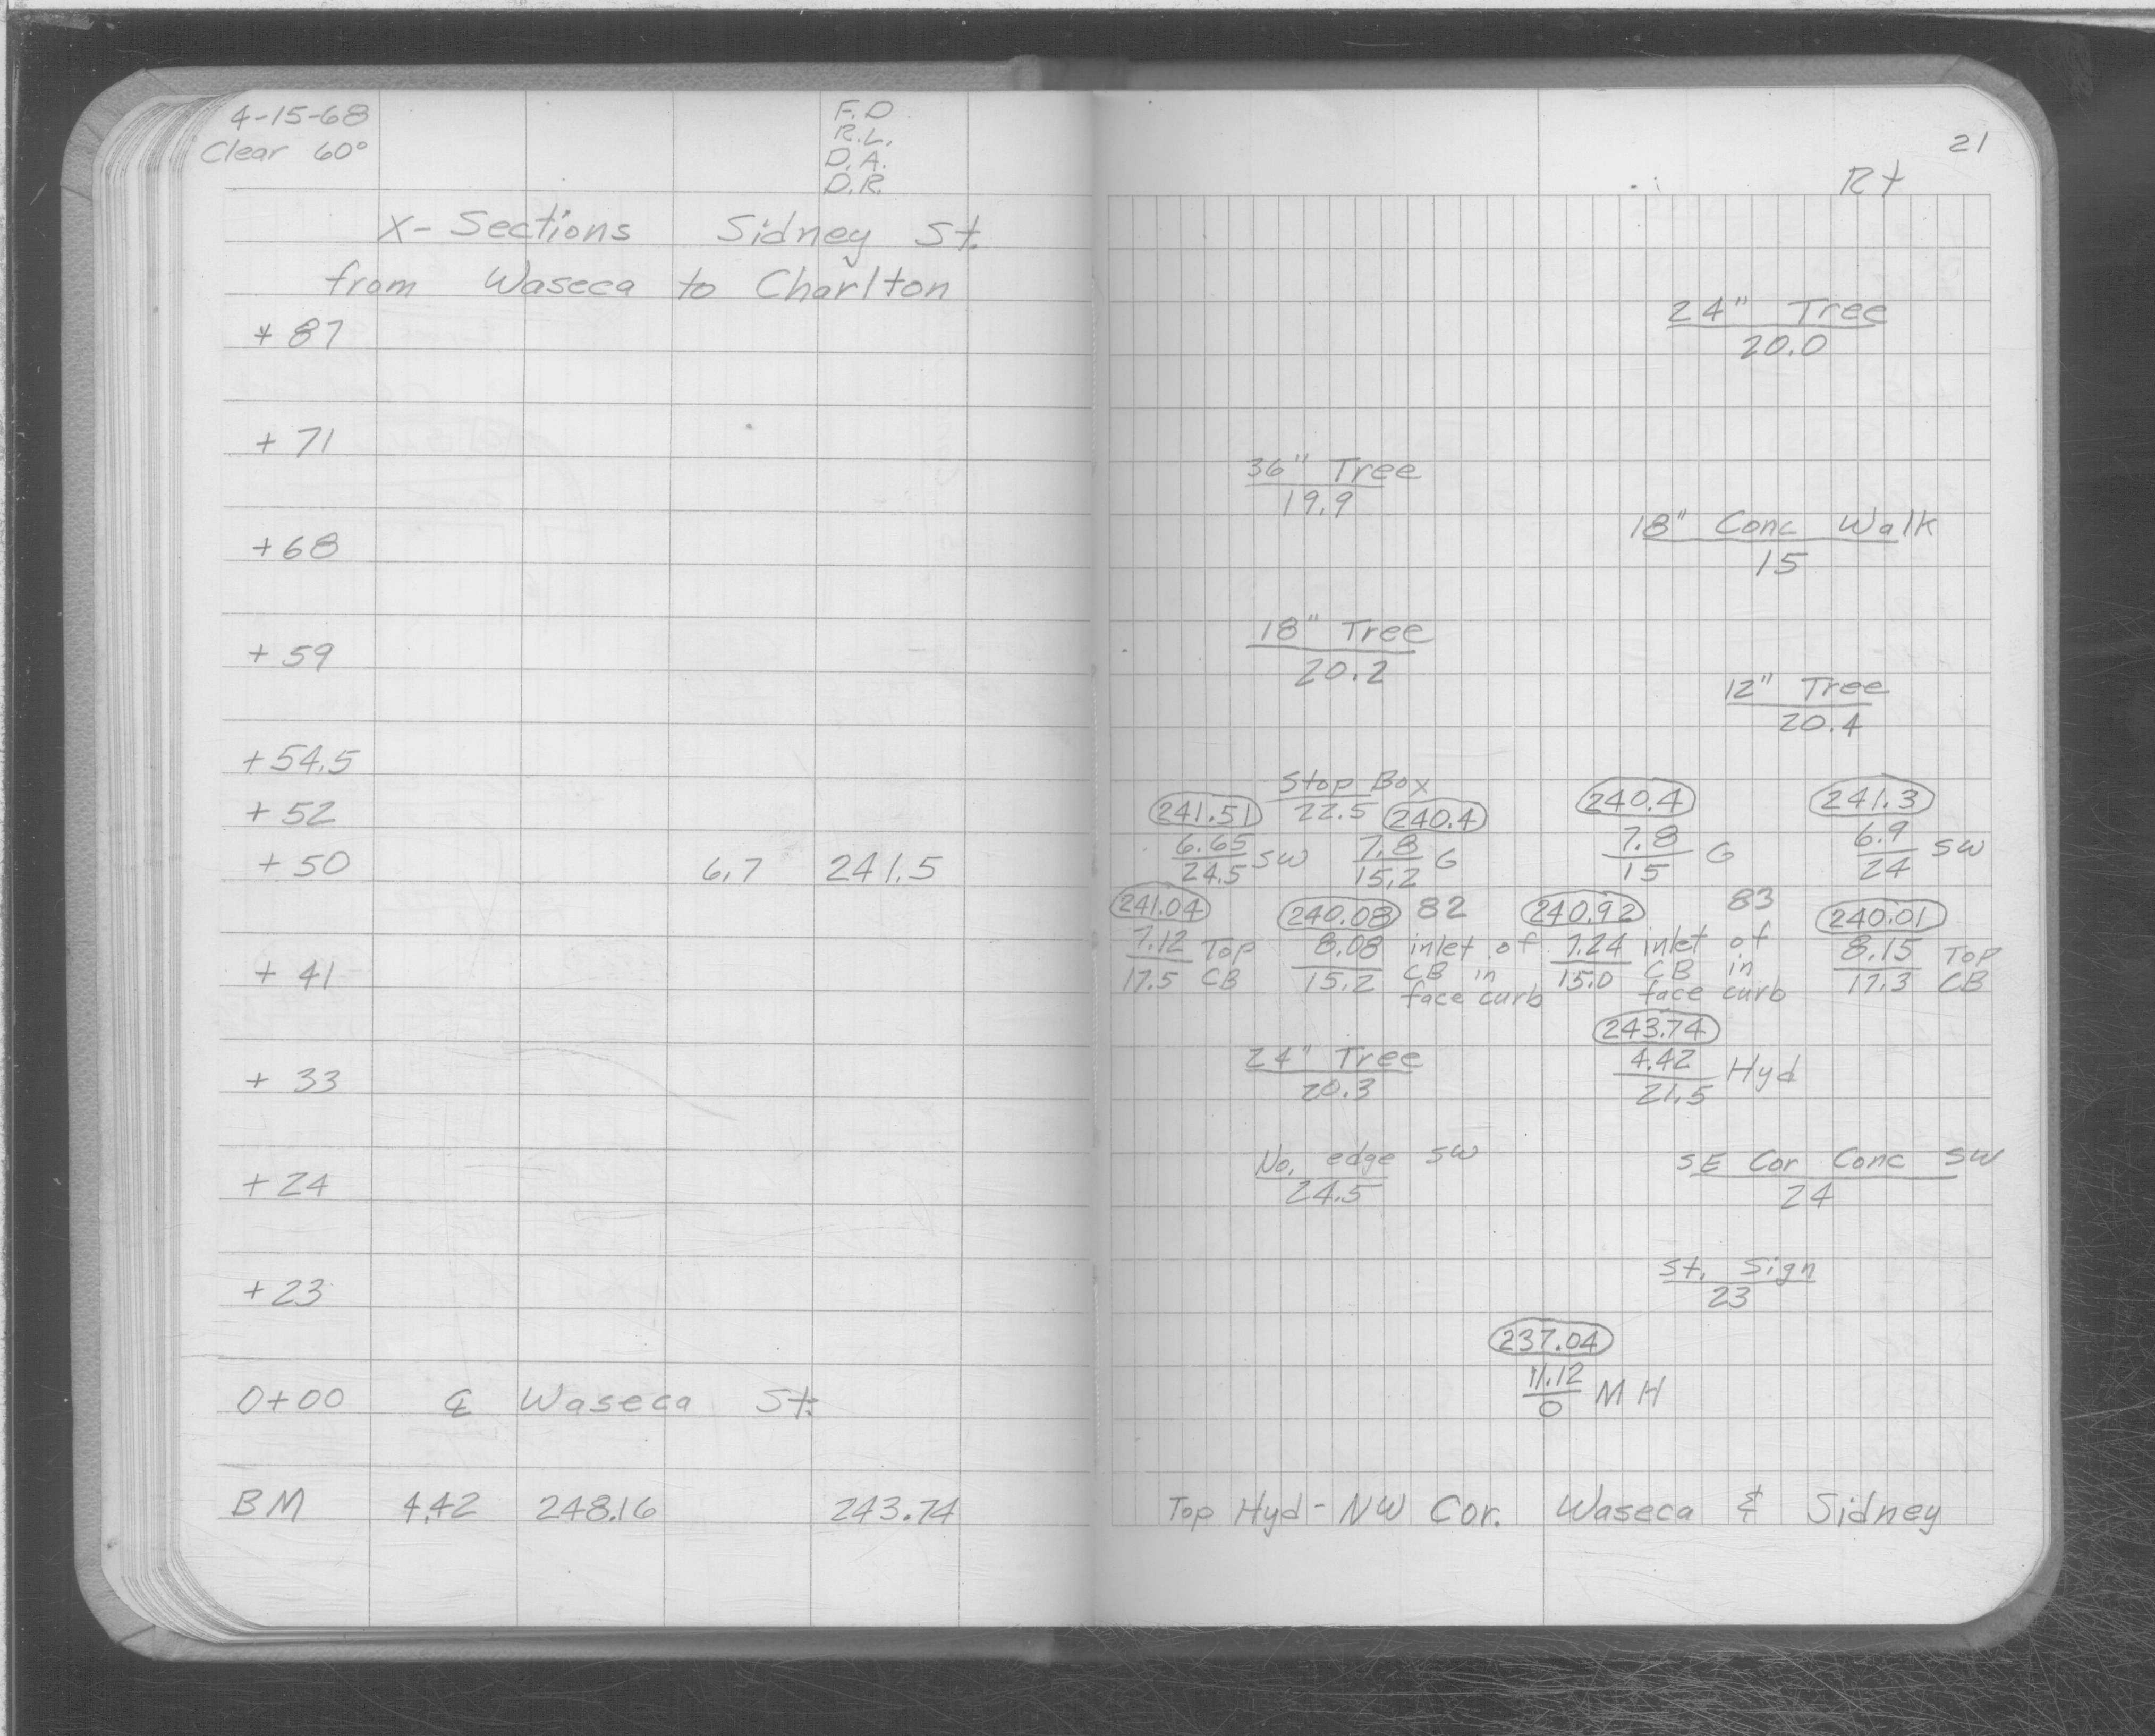 4-15-68 F.D
Clear 60° R.L.
D.A.
D.R.
X-Sections Sidney St.
from Waseca to Charlton
+ 87
+ 71
+ 68
+ 59
+ 54.5
+ 52
+ 50 6.7 241.5
+ 41
+ 33
+ 24
+ 23
0+00 ℄ Waseca St.
BM 4.42 248.16 243.74
21
Rt
24" Tree
20.0
36" Tree
19.9
18" Conc Walk
15
18" Tree
20.2
12" Tree
20.4
Stop Box
22.5
241.51 240.4 240.4 241.3
6.65 SW 7.8 G 7.8 G 6.9 SW
24.5 15.2 15 24
241.04 240.08 82 240.92 83 240.01
7.12 Top 8.08 inlet of 7.24 inlet of 8.15 Top
17.5 CB 15.2 CB in 15.0 CB in 17.3 CB
face curb face curb
243.74
24" Tree 4.42 Hyd
20.3 21.5
No. edge SW SE Cor Conc SW
24.5 24
St. Sign
23
237.04
11.12 MH
0
Top Hyd - NW Cor. Waseca & Sidney